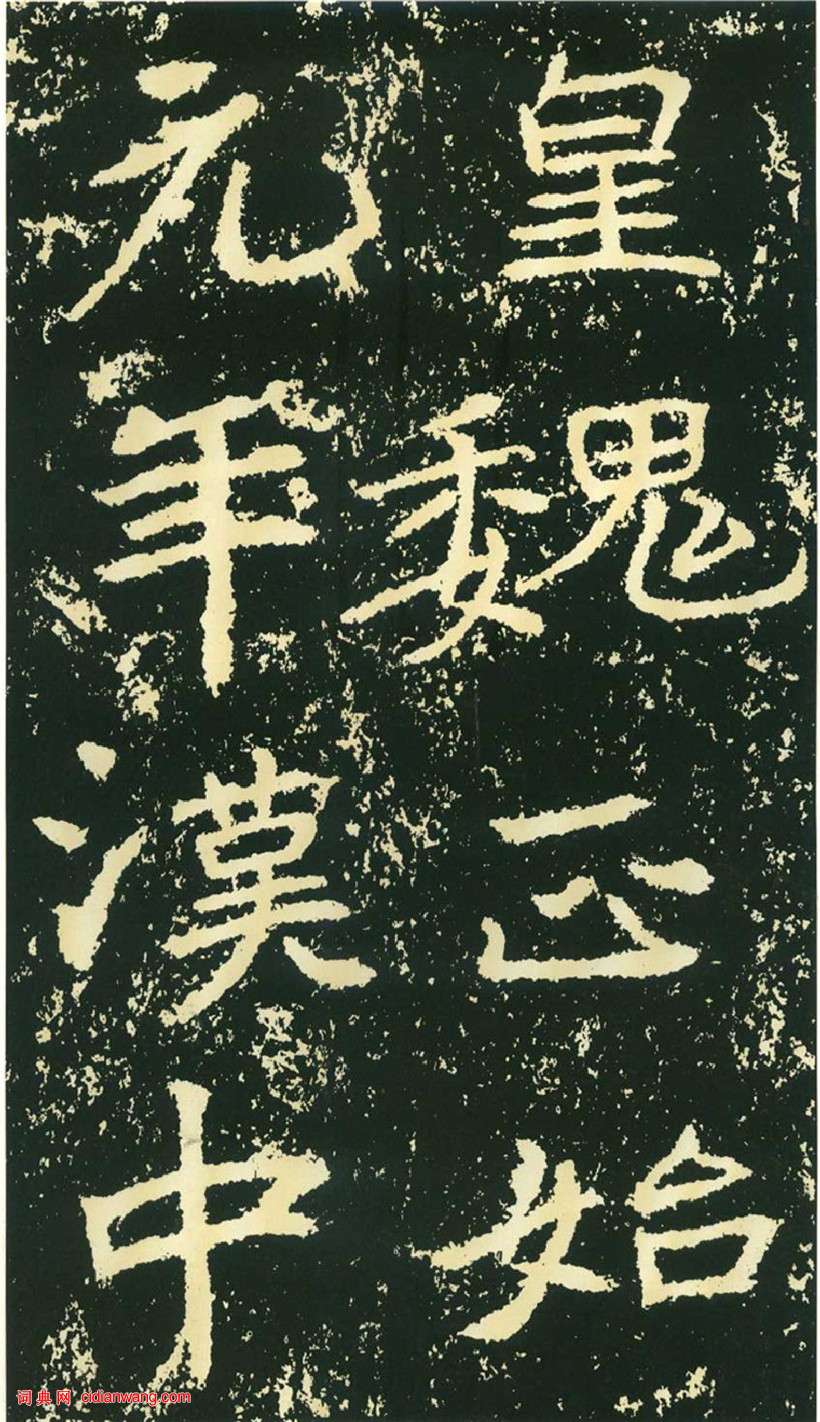 皇魏正始
元年漢中
词典网 cidianwang.com